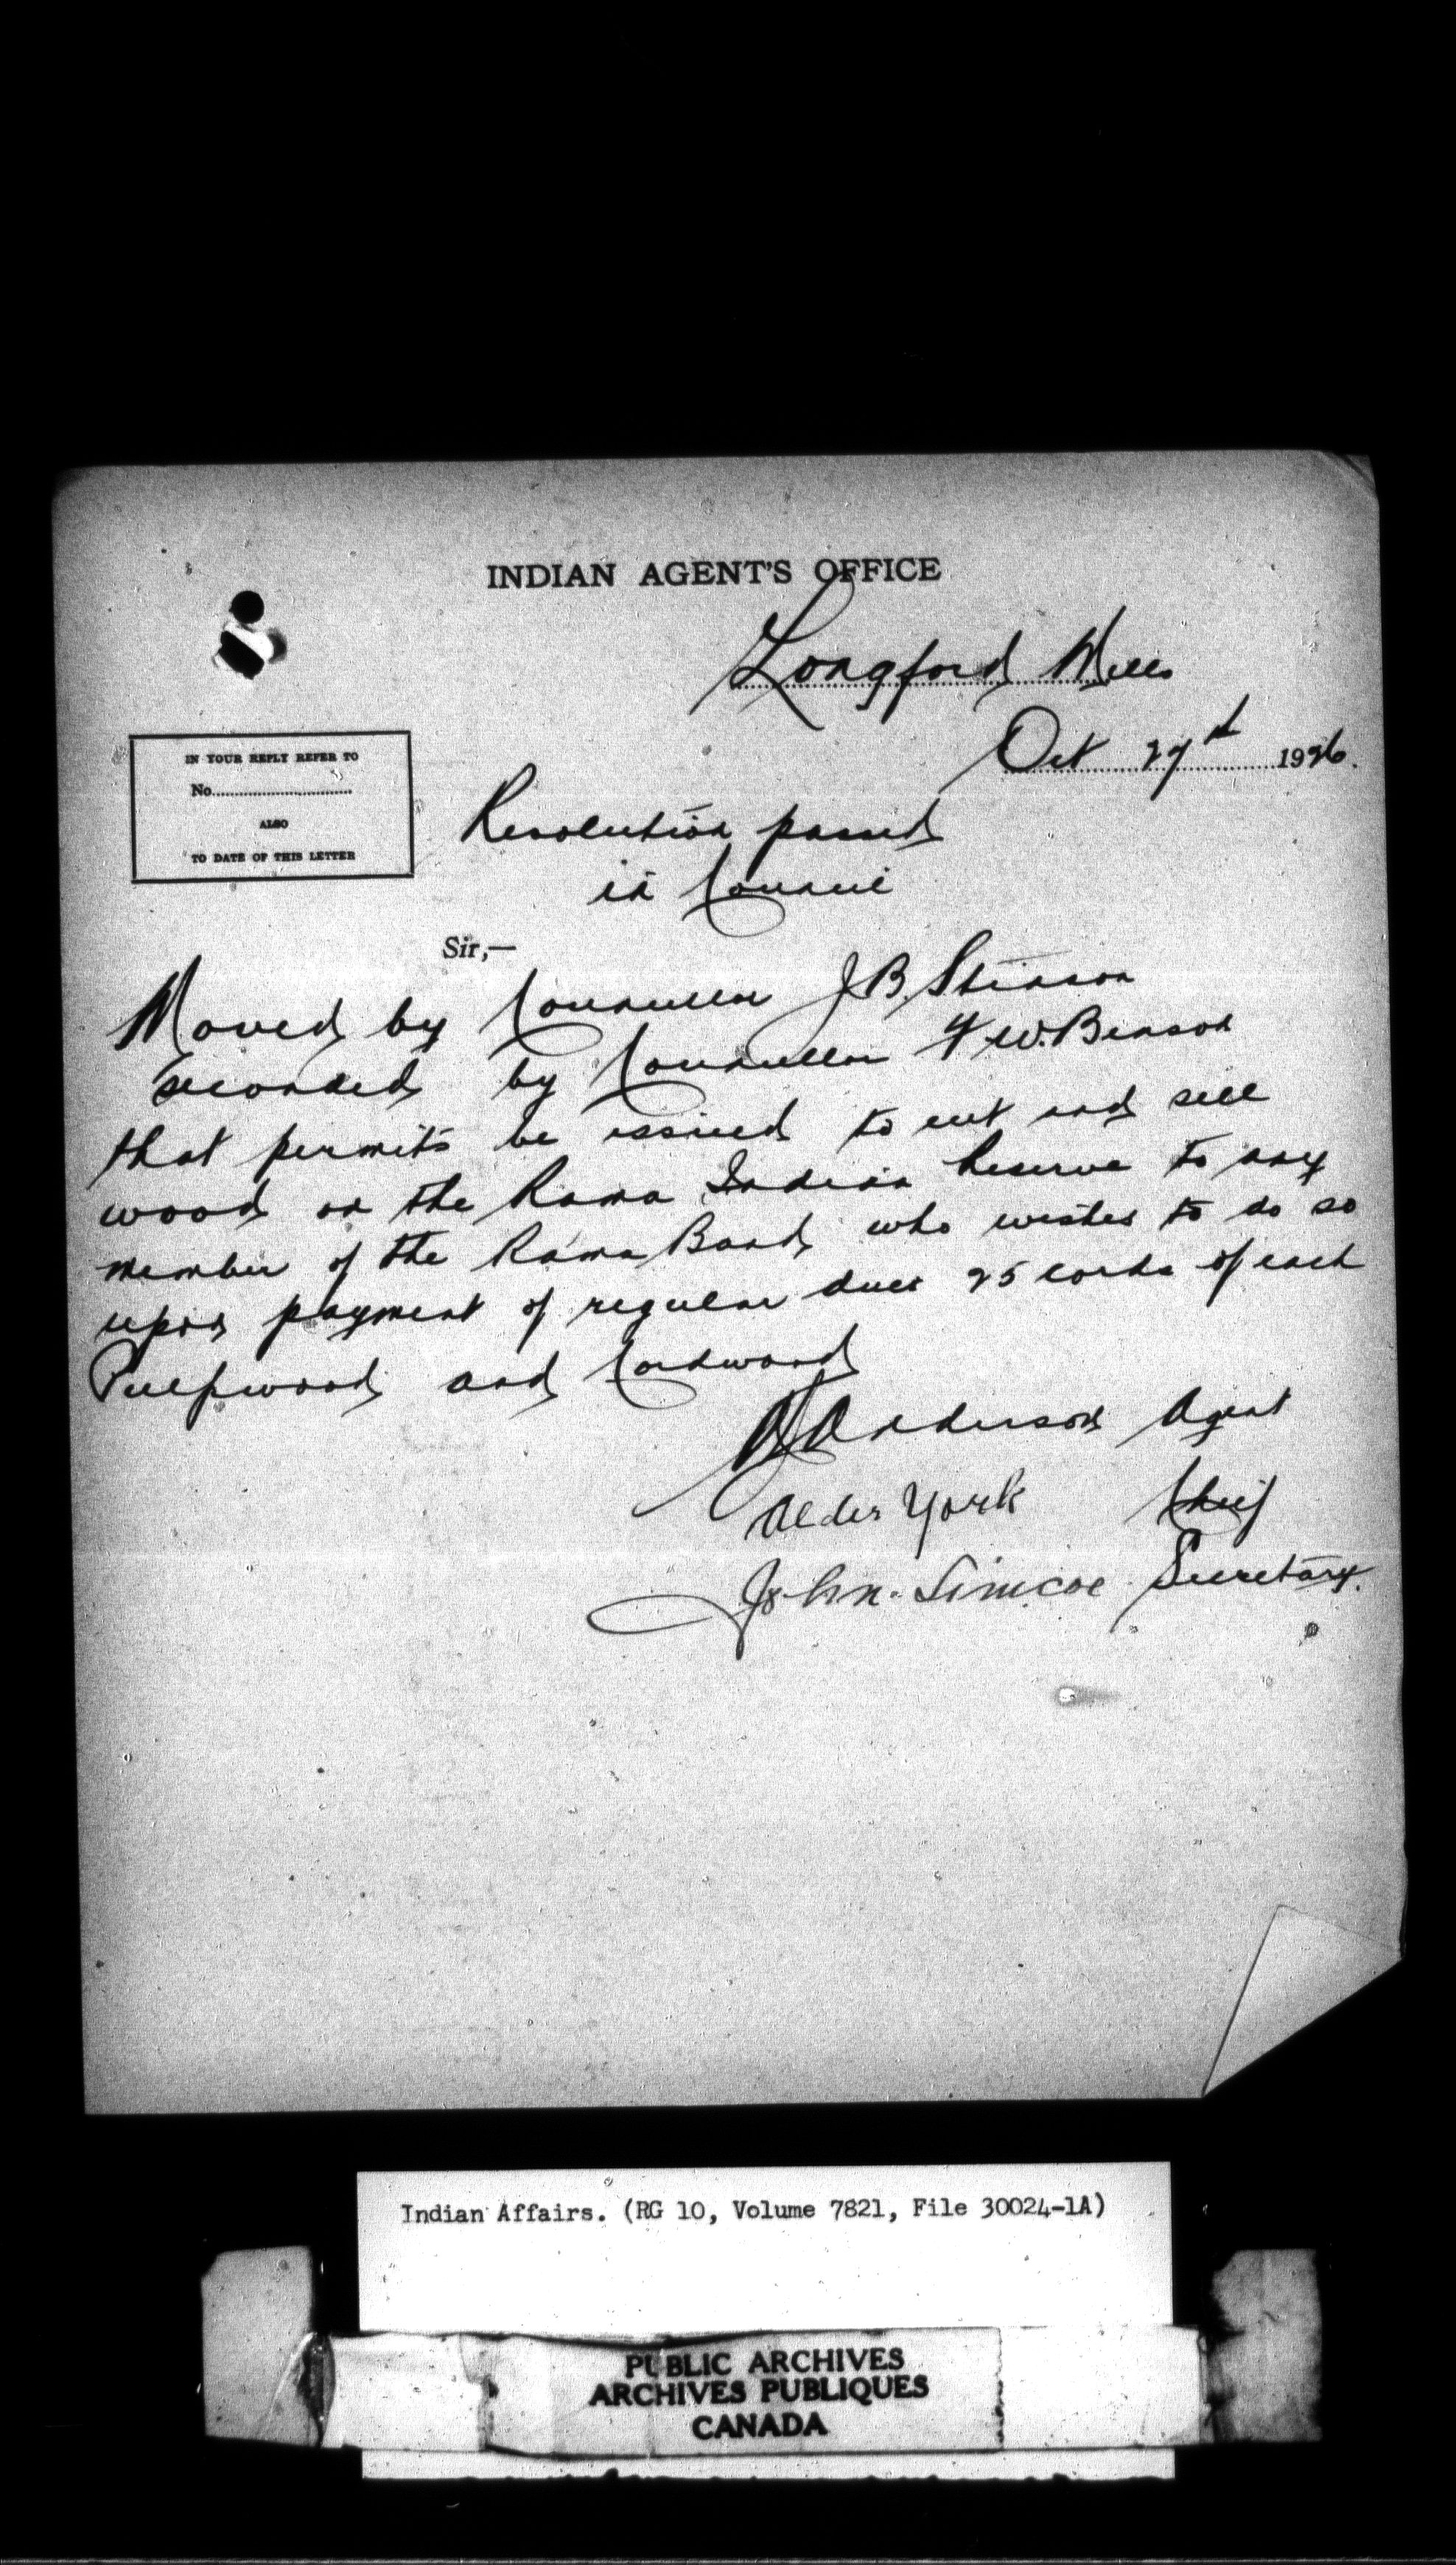 INDIAN AGENT'S OFFICE
Longford Mills
Oct 27th 1926.
IN YOUR REPLY REFER TO
No.
ALSO
TO DATE OF THIS LETTER
Resolution passed
in Council
Sir,—
Moved by Councillor J B. Stinson
seconded by Councillor W. Benson
that permits be issued to cut and sell
wood on the Rama Indian Reserve to any
member of the Rama Band who wishes to do so
upon payment of regular dues 25 cords of each
Pulpwood and Cordwood
Anderson Agent
Alder York Chief
John. Simcoe Secretary.
Indian Affairs. (RG 10, Volume 7821, File 30024-1A)
PUBLIC ARCHIVES
ARCHIVES PUBLIQUES
CANADA